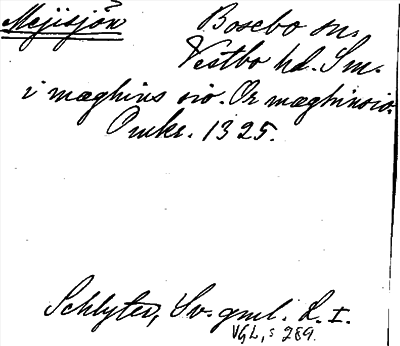 Mejisjön
Bosebo sn.
Vestbo hd. Sm.
i mæghins sio. Or mæghinsio.
Omkr. 1325.
Schlyter, Sv. gml. L. I.
VGL, s 289.